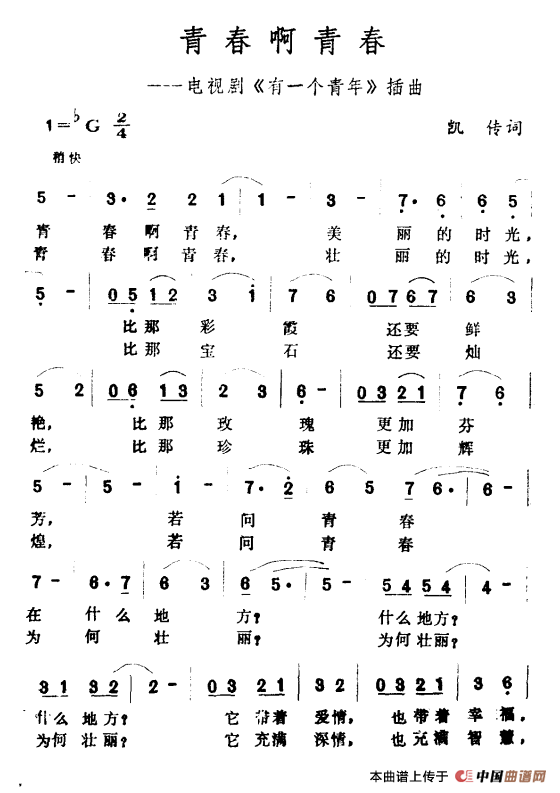 青春啊青春
----电视剧《有一个青年》插曲
1=♭G 2/4
凯 传词
稍快
5 - | 3· 2 2 1 | 1 - | 3 - | 7· 6 6 5 |
青 春啊青春， 美 丽的时光，
青 春啊青春， 壮 丽的时光，
5 - | 0 5 1 2 3 1 | 7 6 | 0 7 6 7 6 3 |
比那彩 霞 还要鲜
比那宝 石 还要灿
5 2 | 0 6 1 3 2 3 | 1 6 | 0 3 2 1 7 6 |
艳， 比那玫 瑰 更加芬
烂， 比那珍 珠 更加辉
5 - | 5 - | 1 - | 7· 2 | 6 5 7 6· | 6 - |
芳， 若 问 青 春
煌， 若 问 青 春
7 - | 6· 7 | 6 3 | 5 6 5· | 5 - | 5 4 5 4 | 4 - |
在 什么 地 方？ 什么地方？
为 何 壮 丽？ 为何壮丽？
3 1 3 2 | 2 - | 0 3 2 1 | 3 5 | 0 3 2 1 | 3 6 |
什么地方？ 它 带着 爱情， 也带着 幸福，
为何壮丽？ 它 充满 深情， 也充满 智慧，
本曲谱上传于 中国曲谱网